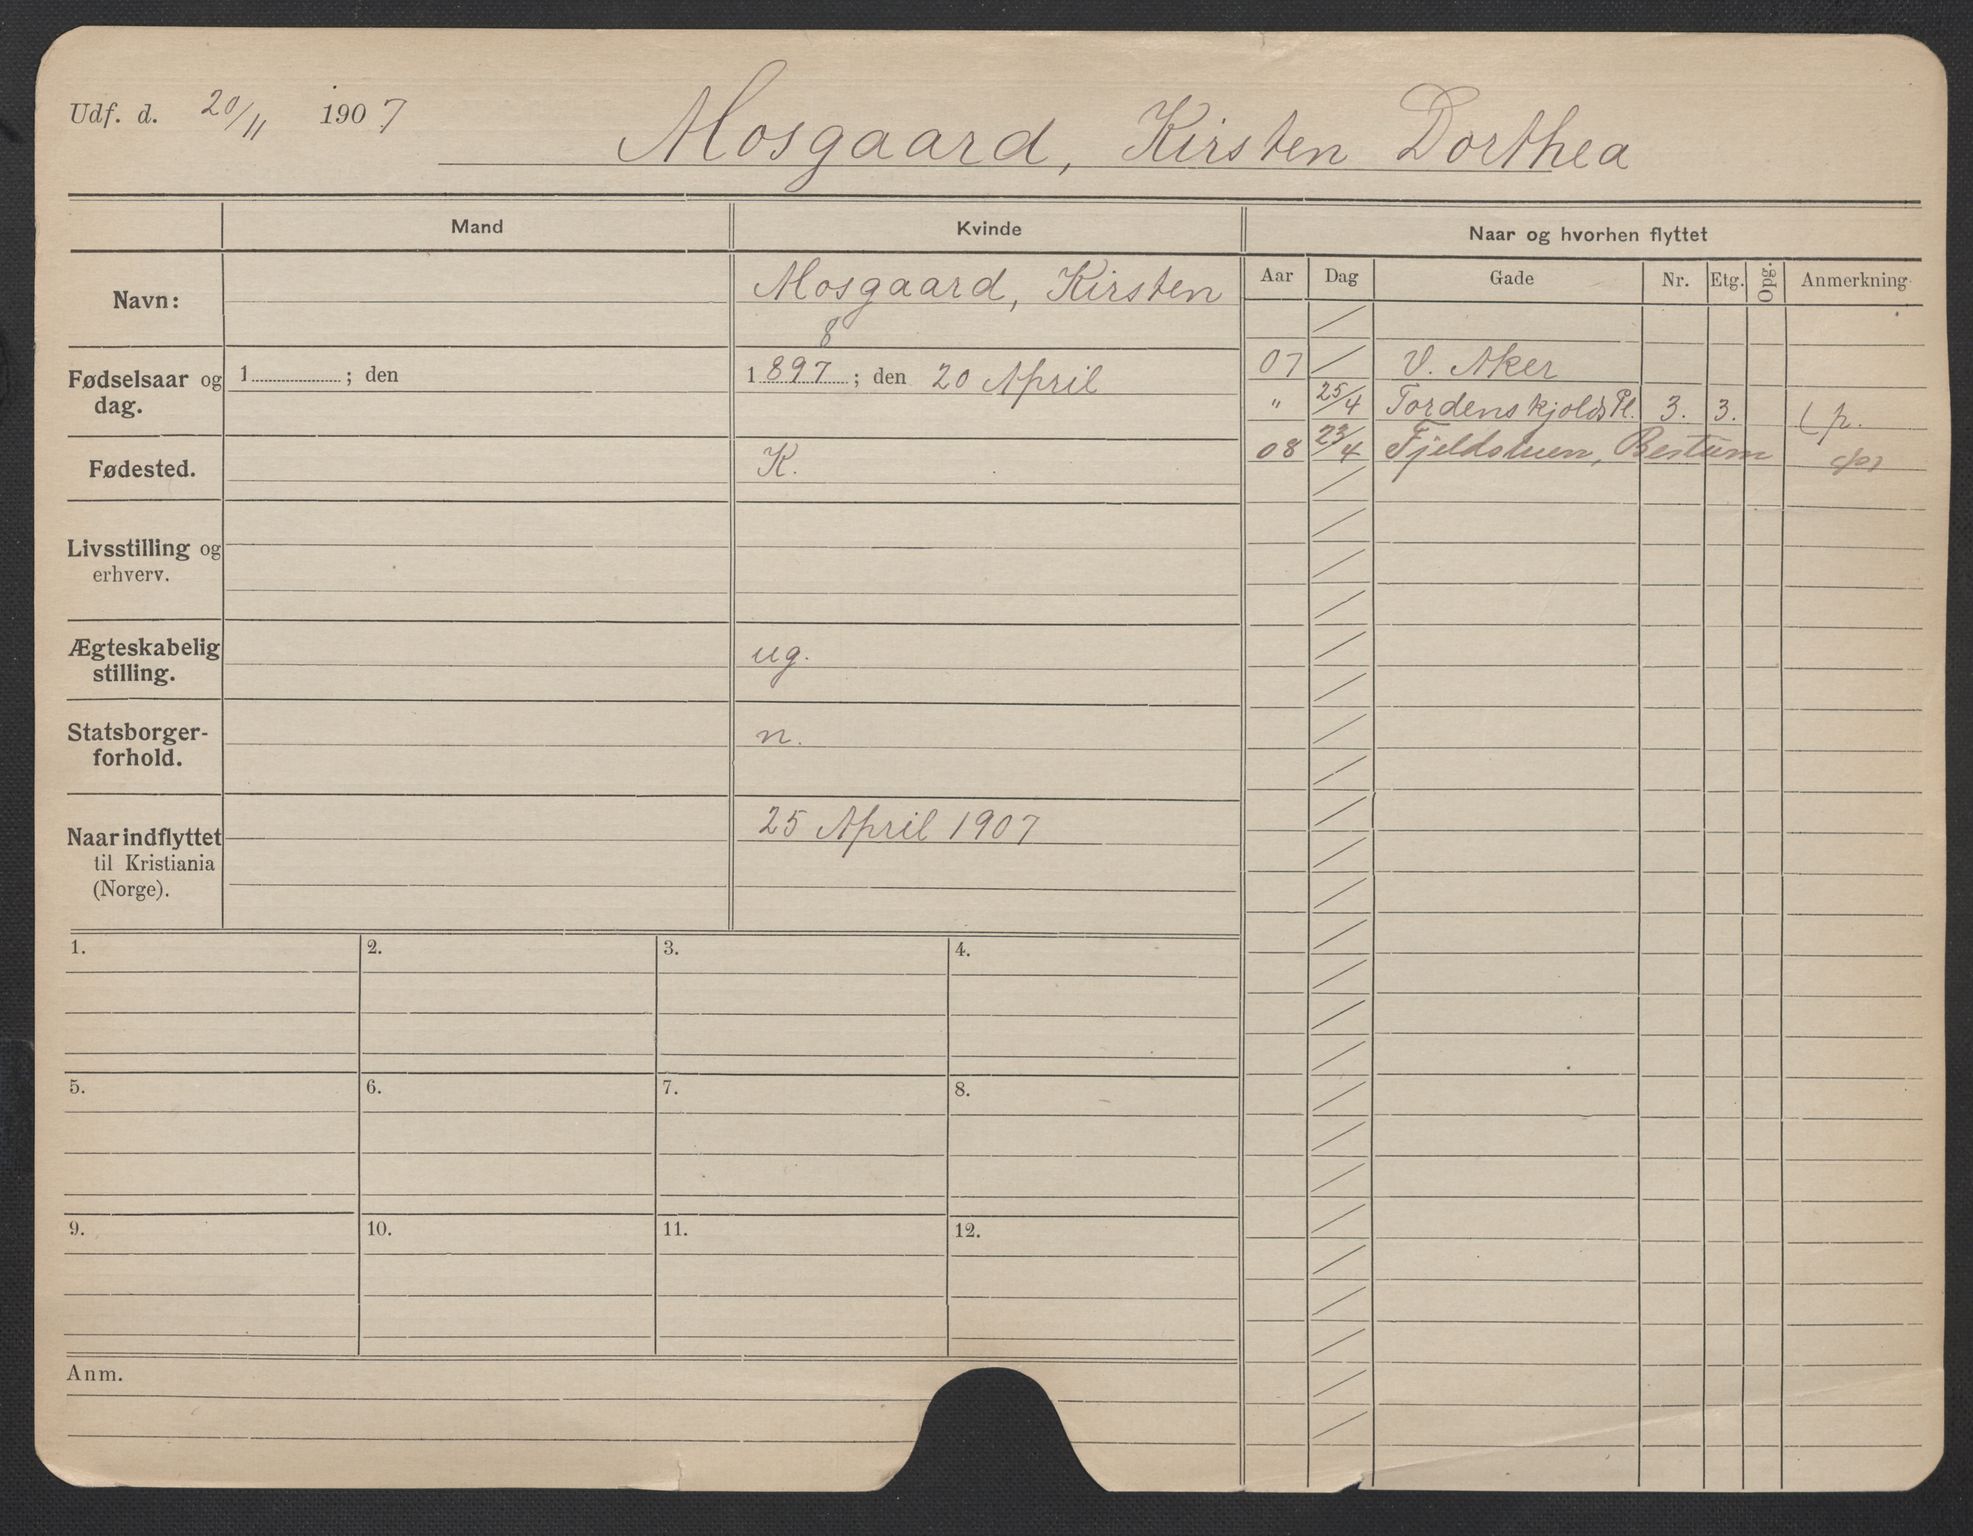 Udf. d. 20/11 1907
Mosgaard, Kirsten Dorthea
Mand Kvinde Naar og hvorhen flyttet
Aar Dag Gade Nr. Etg. Opg. Anmerkning
Navn: Mosgaard, Kirsten
8
Fødselsaar og dag. 1 ; den 1897 ; den 20 April
Fødested. K.
Livsstilling og erhverv.
Ægteskabelig stilling. ug.
Statsborgerforhold. n.
Naar indflyttet til Kristiania (Norge). 25 April 1907
07 V. Aker
" 25/4 Tordenskjolds Pl. 3. 3. (p.
08 23/4 Fjeldstuen, Bestum
1. 2. 3. 4.
5. 6. 7. 8.
9. 10. 11. 12.
Anm.